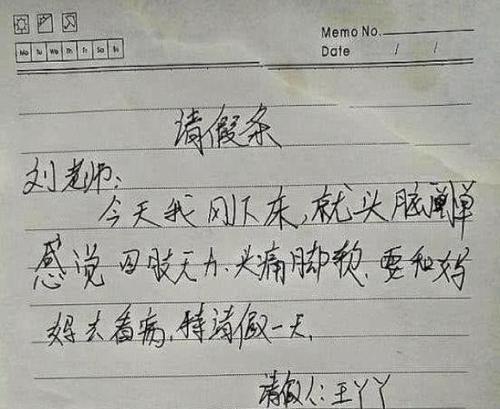 Memo No.
Mo Tu We Th Fr Sa Su
Date / /
请假条
刘老师:
今天我刚下床,就头脑
感觉四肢无力、头痛脚软,要和妈
妈去看病,特请假一天,
请假人:王丫丫